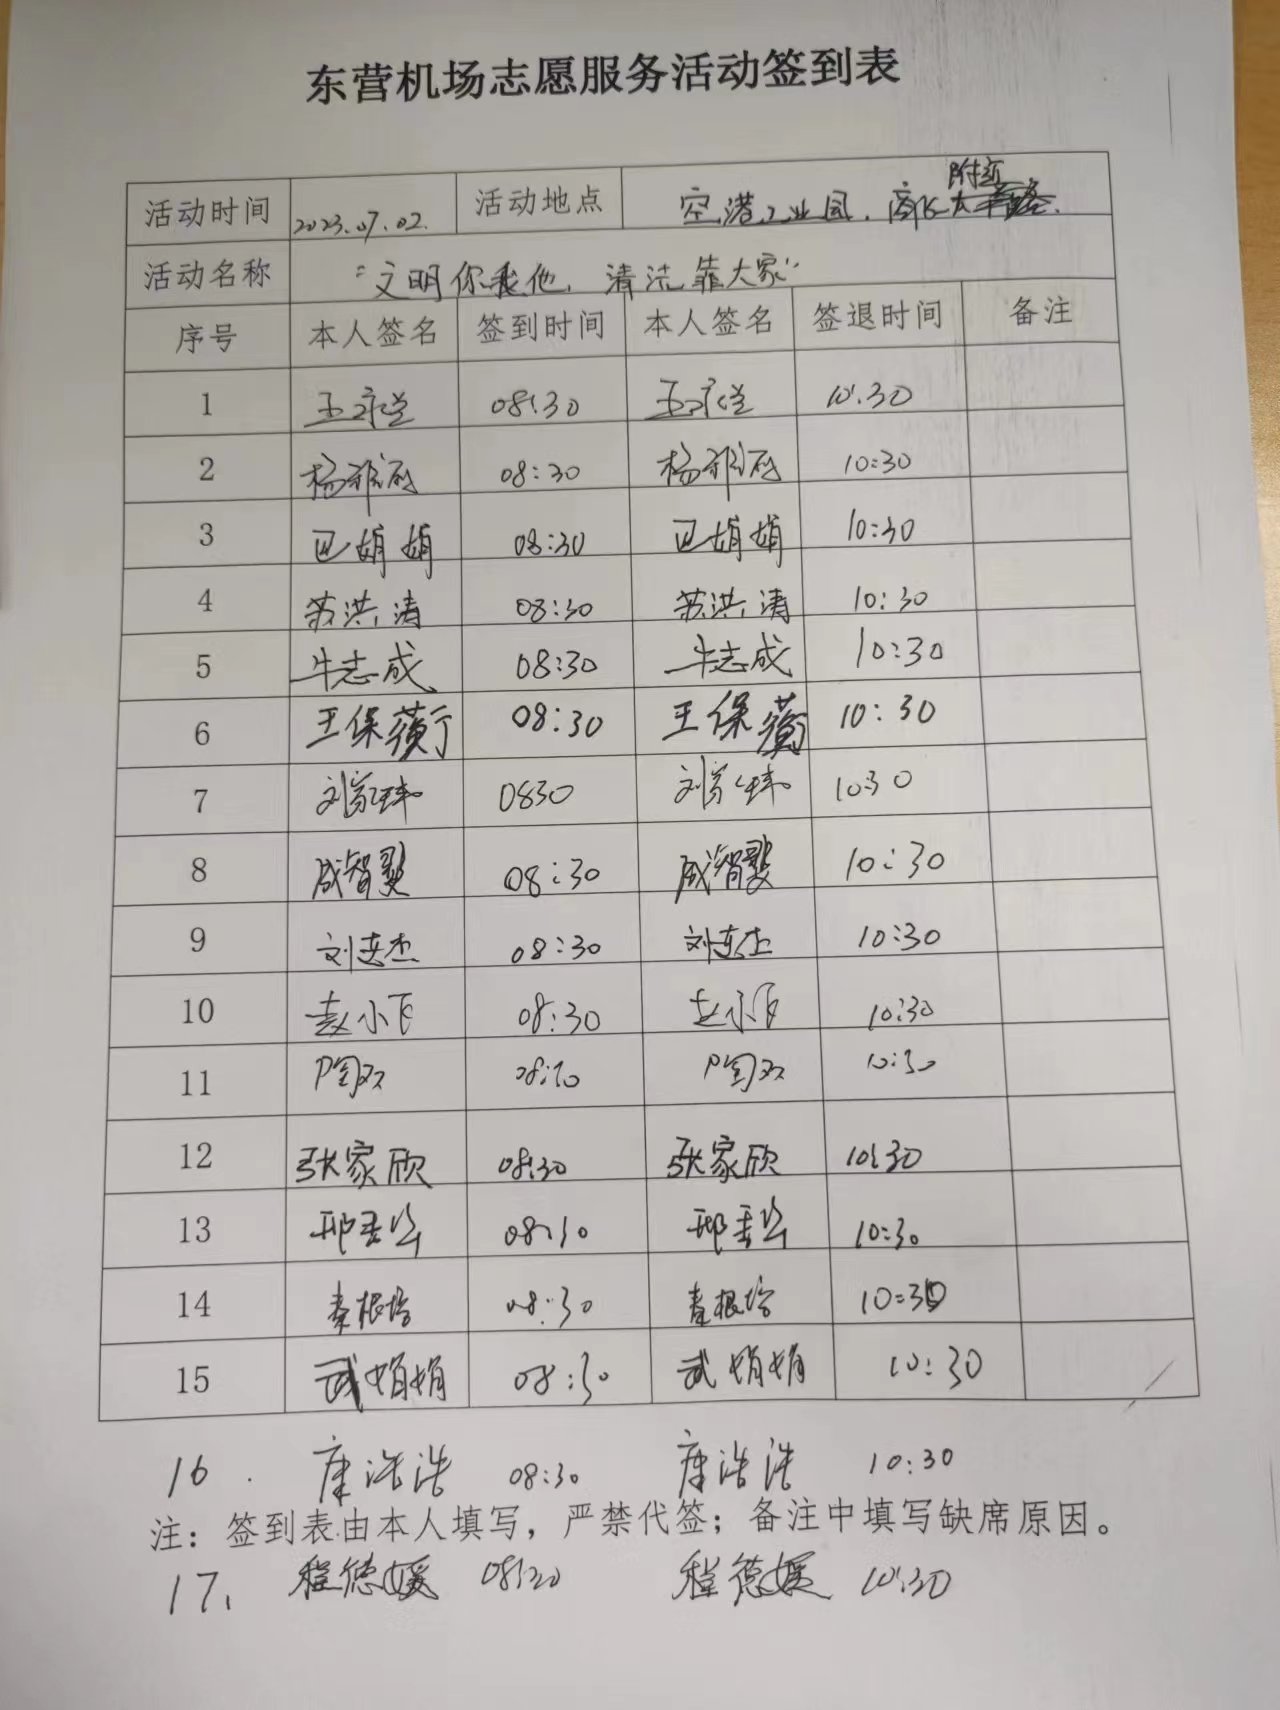 东营机场志愿服务活动签到表
附近
活动时间 2023.07.02. 活动地点 空港工业园、商飞大
活动名称 "文明你我他,清洁靠大家"
序号 本人签名 签到时间 本人签名 签退时间 备注
1 08:30 10:30
2 杨 08:30 杨 10:30
3 巴娟娟 08:30 巴娟娟 10:30
4 苏洪涛 08:30 苏洪涛 10:30
5 牛志成 08:30 牛志成 10:30
6 王保 08:30 王保 10:30
7 刘家玮 0830 刘家玮 1030
8 成智斐 08:30 成智斐 10:30
9 刘杰 08:30 刘杰 10:30
10 赵小飞 08:30 赵小飞 10:30
11 陶双 08:30 陶双 10:30
12 张家欣 08:30 张家欣 10:30
13 邢 08:30 邢 10:30
14 秦根 08:30 秦根 10:30
15 武娟娟 08:30 武娟娟 10:30
16. 康浩浩 08:30 康浩浩 10:30
注：签到表由本人填写，严禁代签；备注中填写缺席原因。
17. 程德媛 08:30 程德媛 10:30